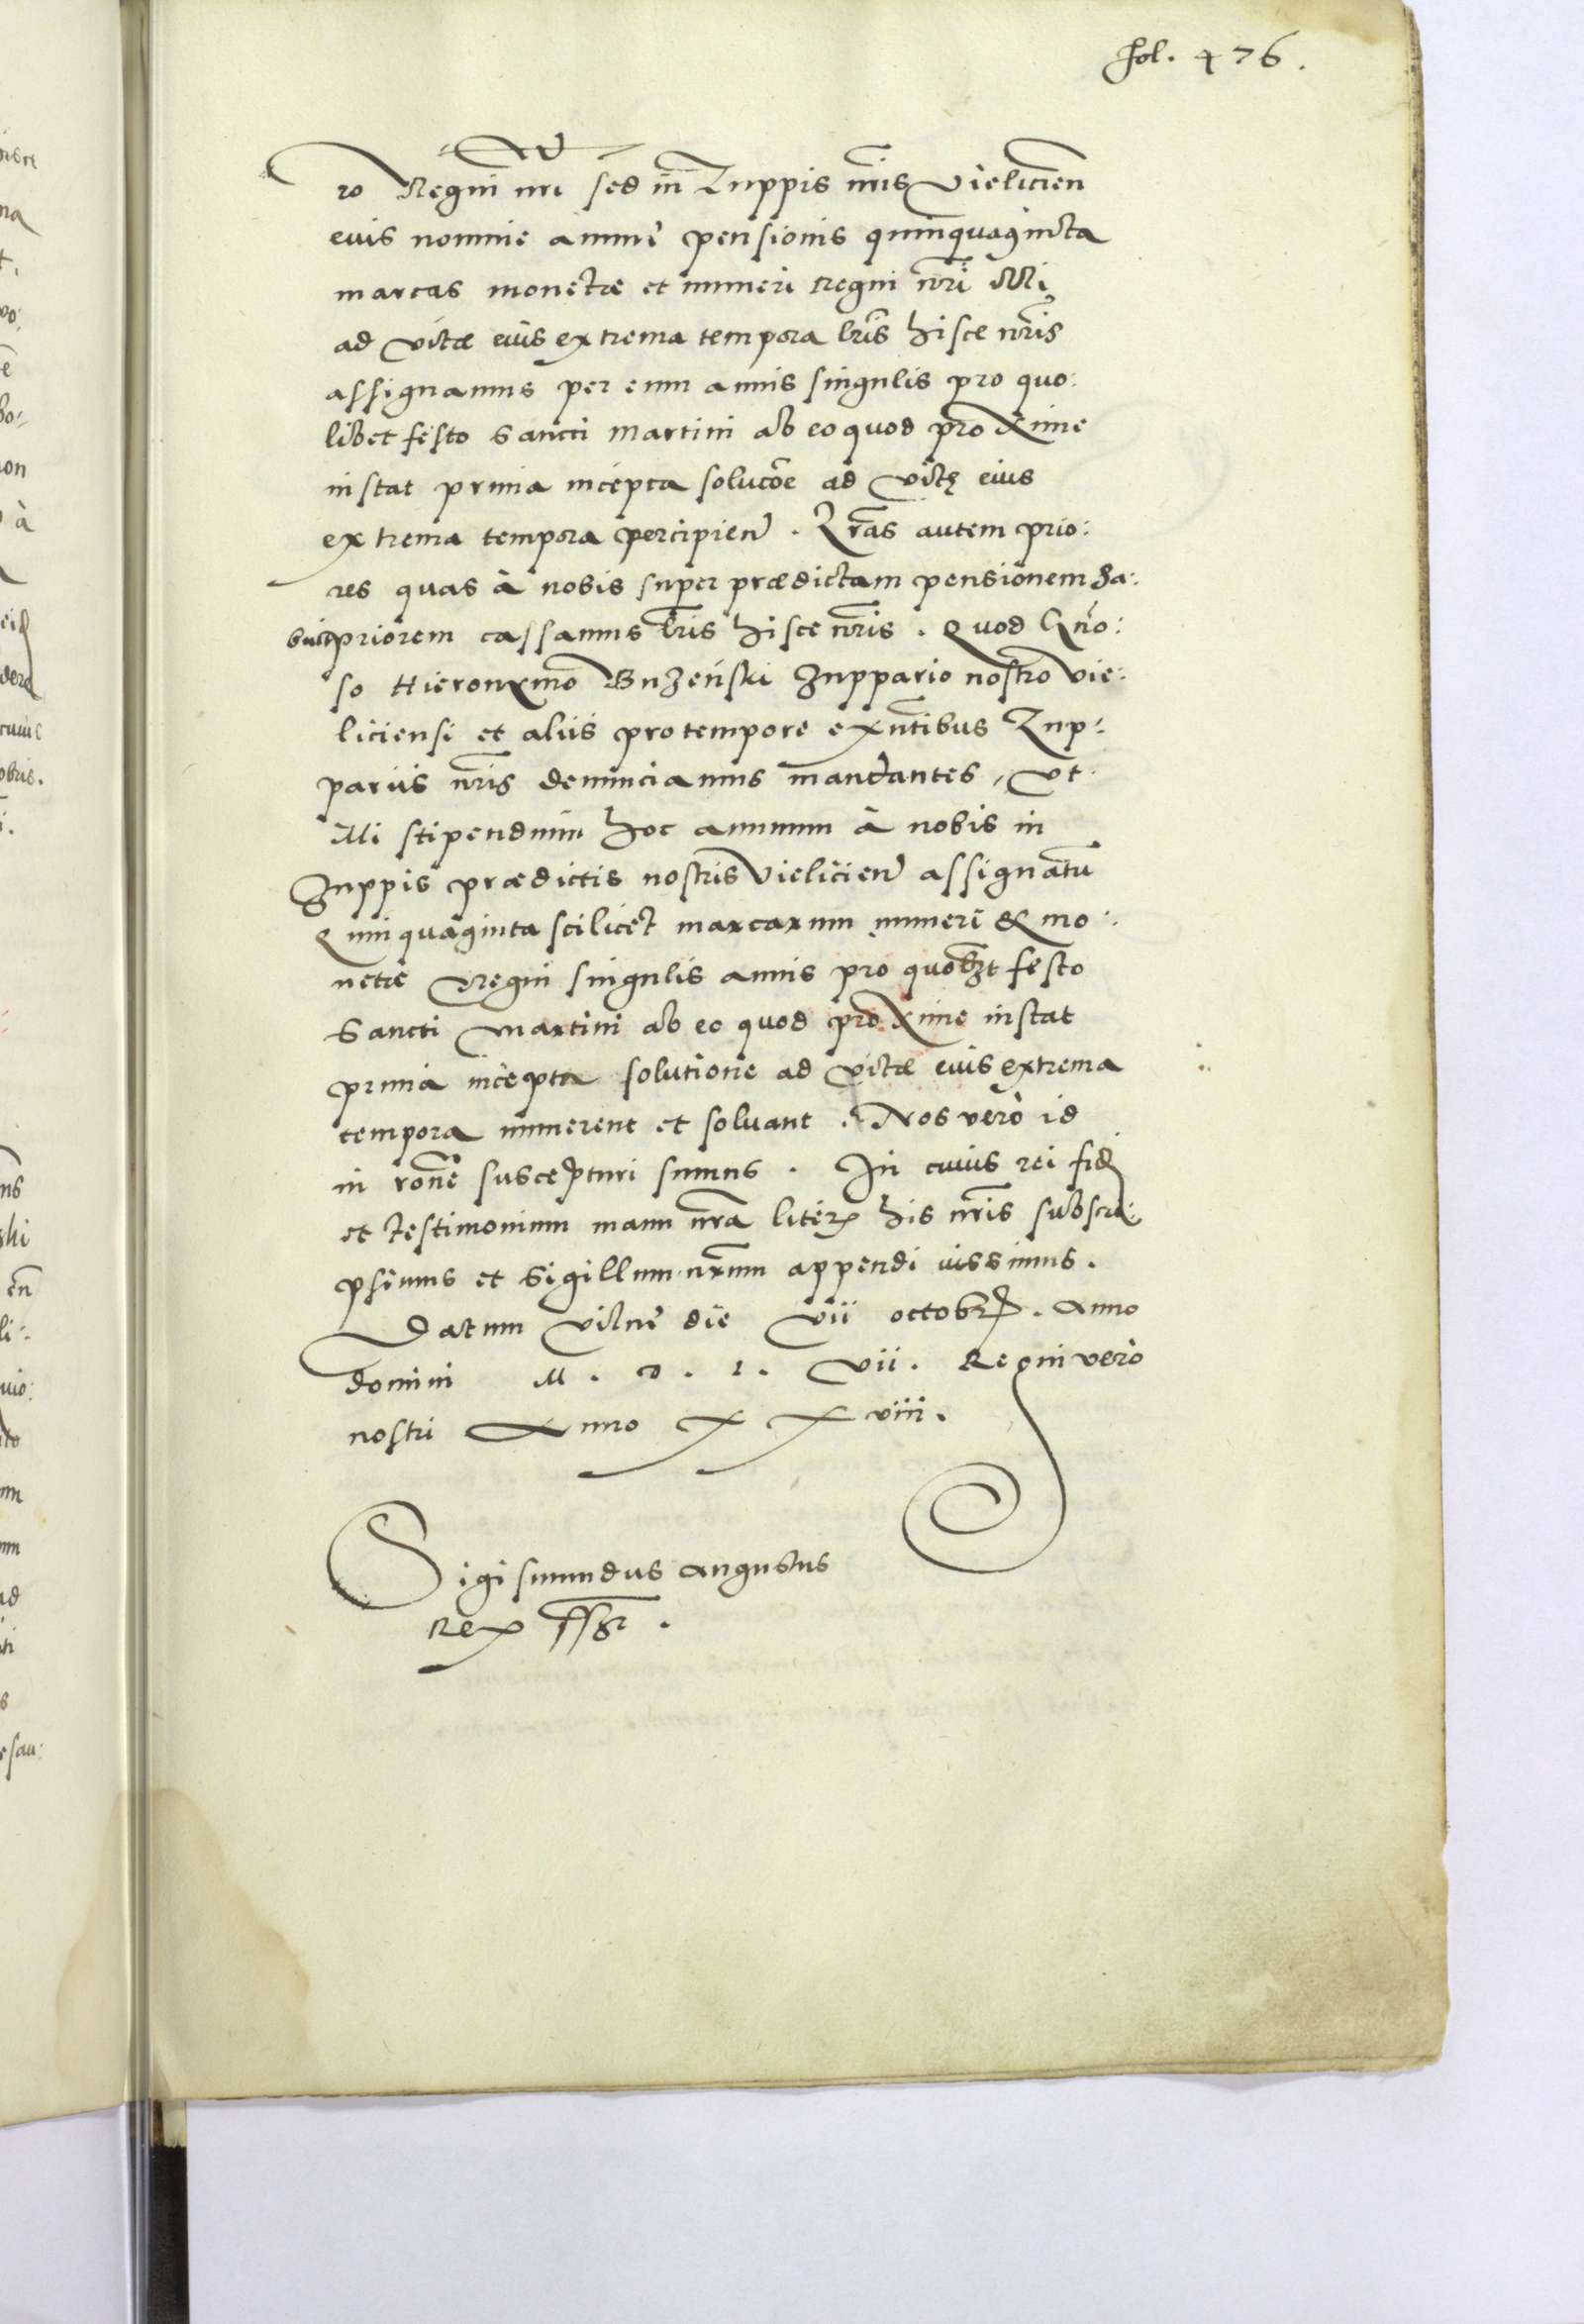 fol. 476.
ro Regni nri sed in Zuppis nris Vielicien
eius nomine annue pensionis quinquaginta
marcas monetæ et numeri Regni nri Illi
ad vitæ eius extrema tempora lris hisce nris
assignamus per eum annis singulis pro quo:
libet festo Sancti Martini ab eo quod proxime
instat prima incepta solucõe ad vitę eius
extrema tempora percipien. Lras autem prio:
res quas à nobis super prædictam pensionem ha:
buit priorem cassamus lris hisce nris. Quod Gñro:
so Hieronymo Buzeński Zuppario nostro Vie:
liciensi et aliis pro tempore exñtibus Zup:
pariis nris denunciamus mandantes, vt
Illi stipendium hoc annuum à nobis in
Zuppis prædictis nostris Vielicien assignatũ
Quinquaginta scilicet marcarum numeri & mo:
netæ Regni singulis annis pro quolzt festo
Sancti Martini ab eo quod proxime instat
prima incepta solutione ad vitæ eius extrema
tempora numerent et soluant. Nos verò id
in rone suscepturi sumus. In cuius rei fid
et testimonium manu nra liter his nris subscri:
psimus et Sigillum nrum appendi iussimus.
Datum Vilnę die vii octobr. Anno
domini M. D. L. vii. Regni verò
nostri Anno XX viii.
Sigismundus Augustus
Rex sst.